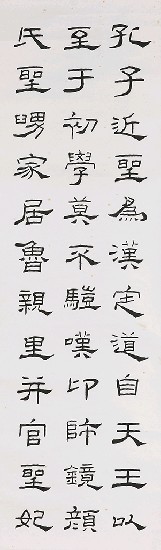 孔子近聖為漢定道自天王以
至于初學莫不騹嘆卬師鏡顏
氏聖舅家居魯親里并官聖妃